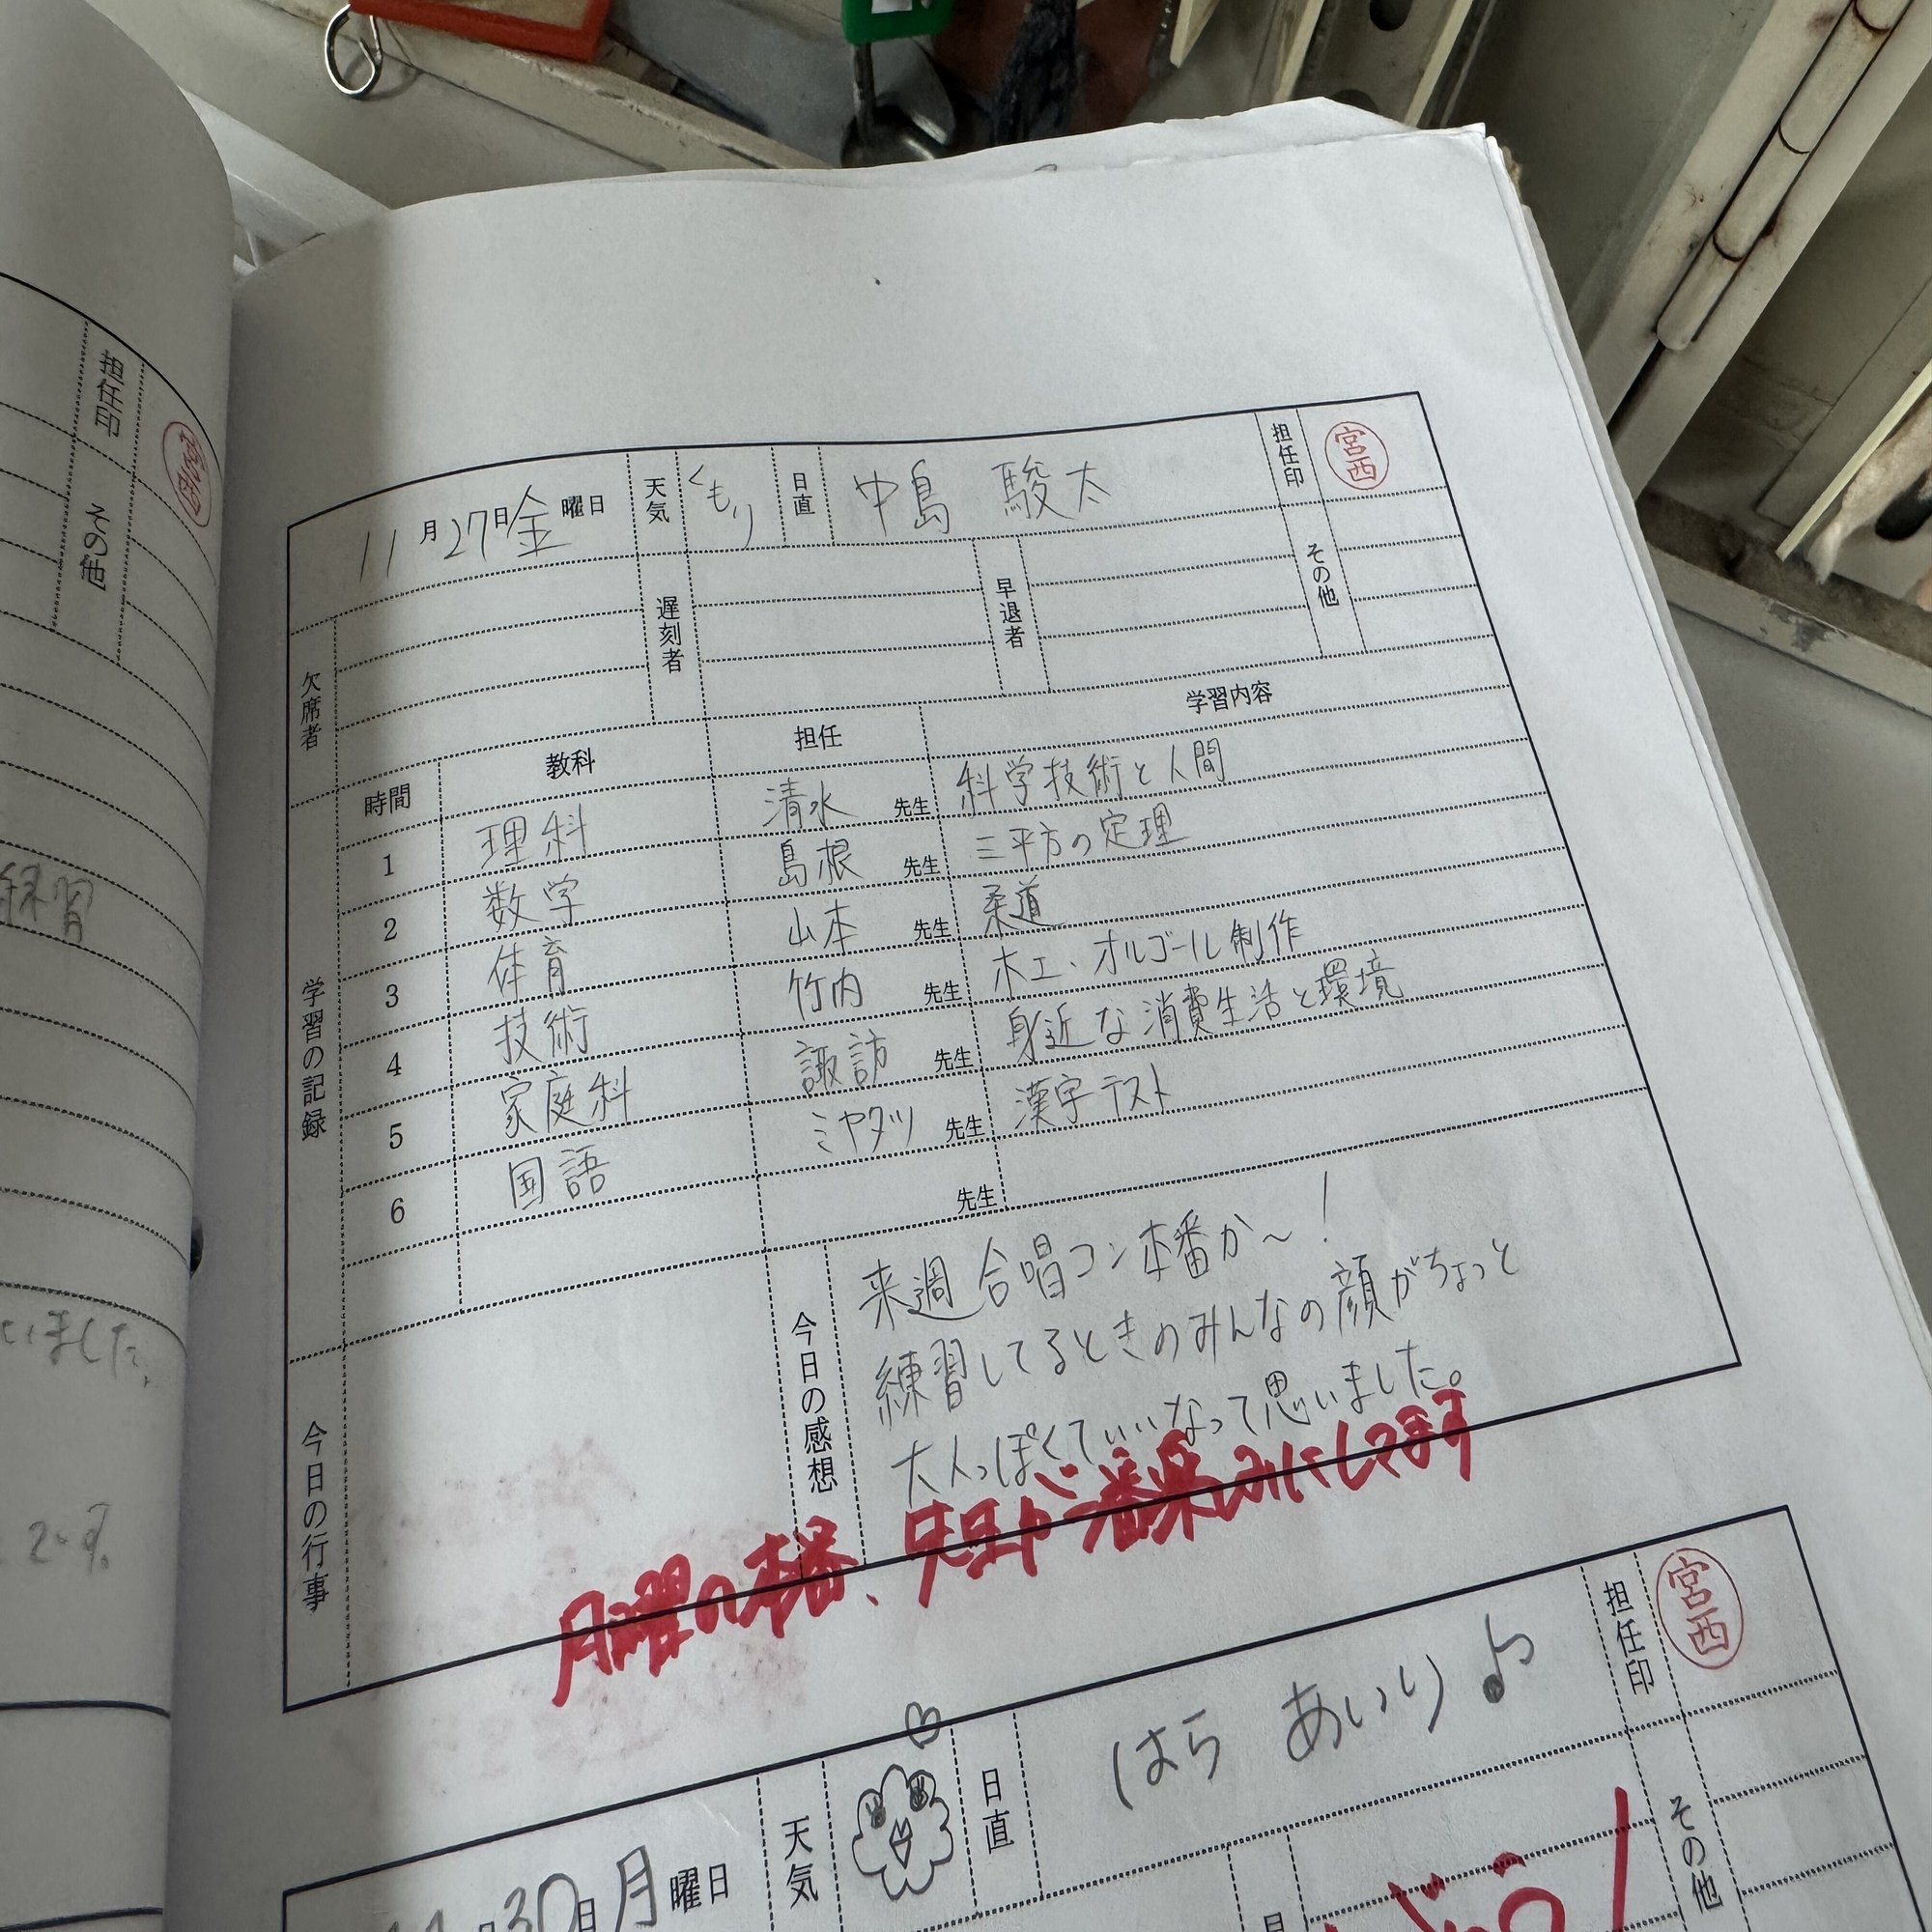 担任印
宮西
その他
練習
いました。
です。
11月27日金曜日 天気 くもり 日直 中島 駿太 担任印 宮西
欠席者 遅刻者 早退者 その他
学習の記録
時間 教科 担任 学習内容
1 理科 清水先生 科学技術と人間
2 数学 島根先生 三平方の定理
3 体育 山本先生 柔道
4 技術 竹内先生 木工、オルゴール制作
5 家庭科 諏訪先生 身近な消費生活と環境
6 国語 ミヤタツ先生 漢字テスト
先生
今日の行事
今日の感想
来週合唱コン本番か〜!
練習してるときのみんなの顔がちょっと
大人っぽくていいなって思いました。
月曜の本番、先生が一番楽しみにしてます
30日月曜日 天気 日直 はら あいり♪ 担任印 宮西
その他